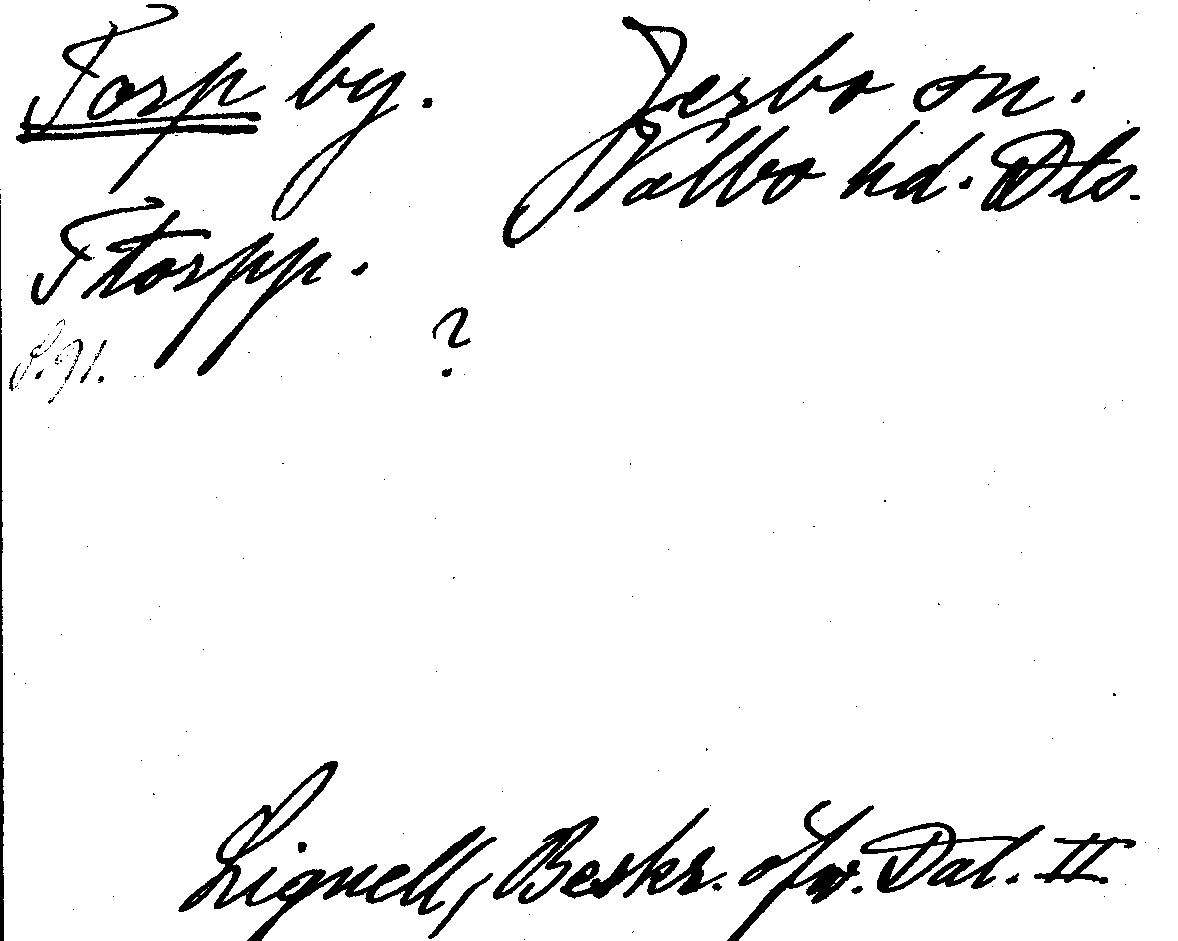 Torp by. Jerbo sn.
Valbo hd. Dls.
T torpp.
S. 91. ?
Lignell, Beskr. ofw. Dal. II.